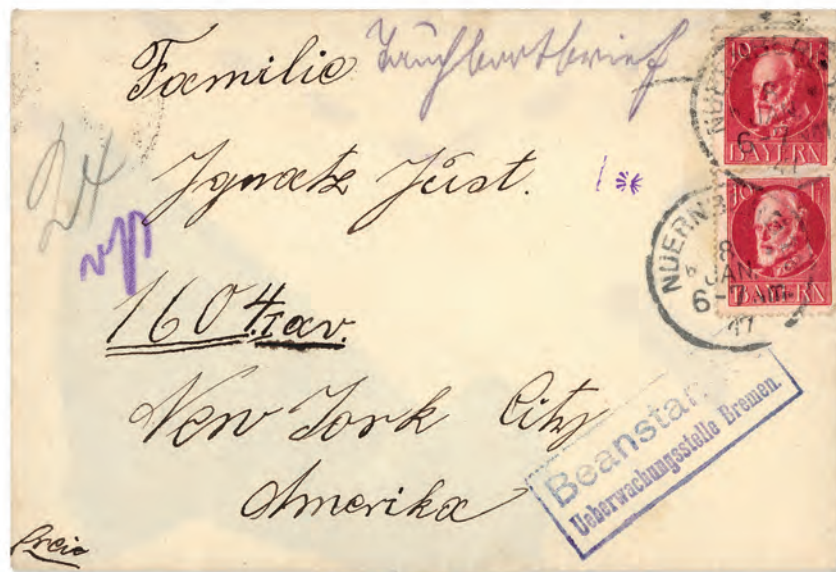 Familie Tauchbootbrief
Ignatz Just.
1604 I av.
New York City
Amerika
frei
24
10 PF
BAYERN
10 PF
BAYERN
NUERNB
8
JAN.
6-7 AM.
17
Beanstan
Ueberwachungsstelle Bremen.